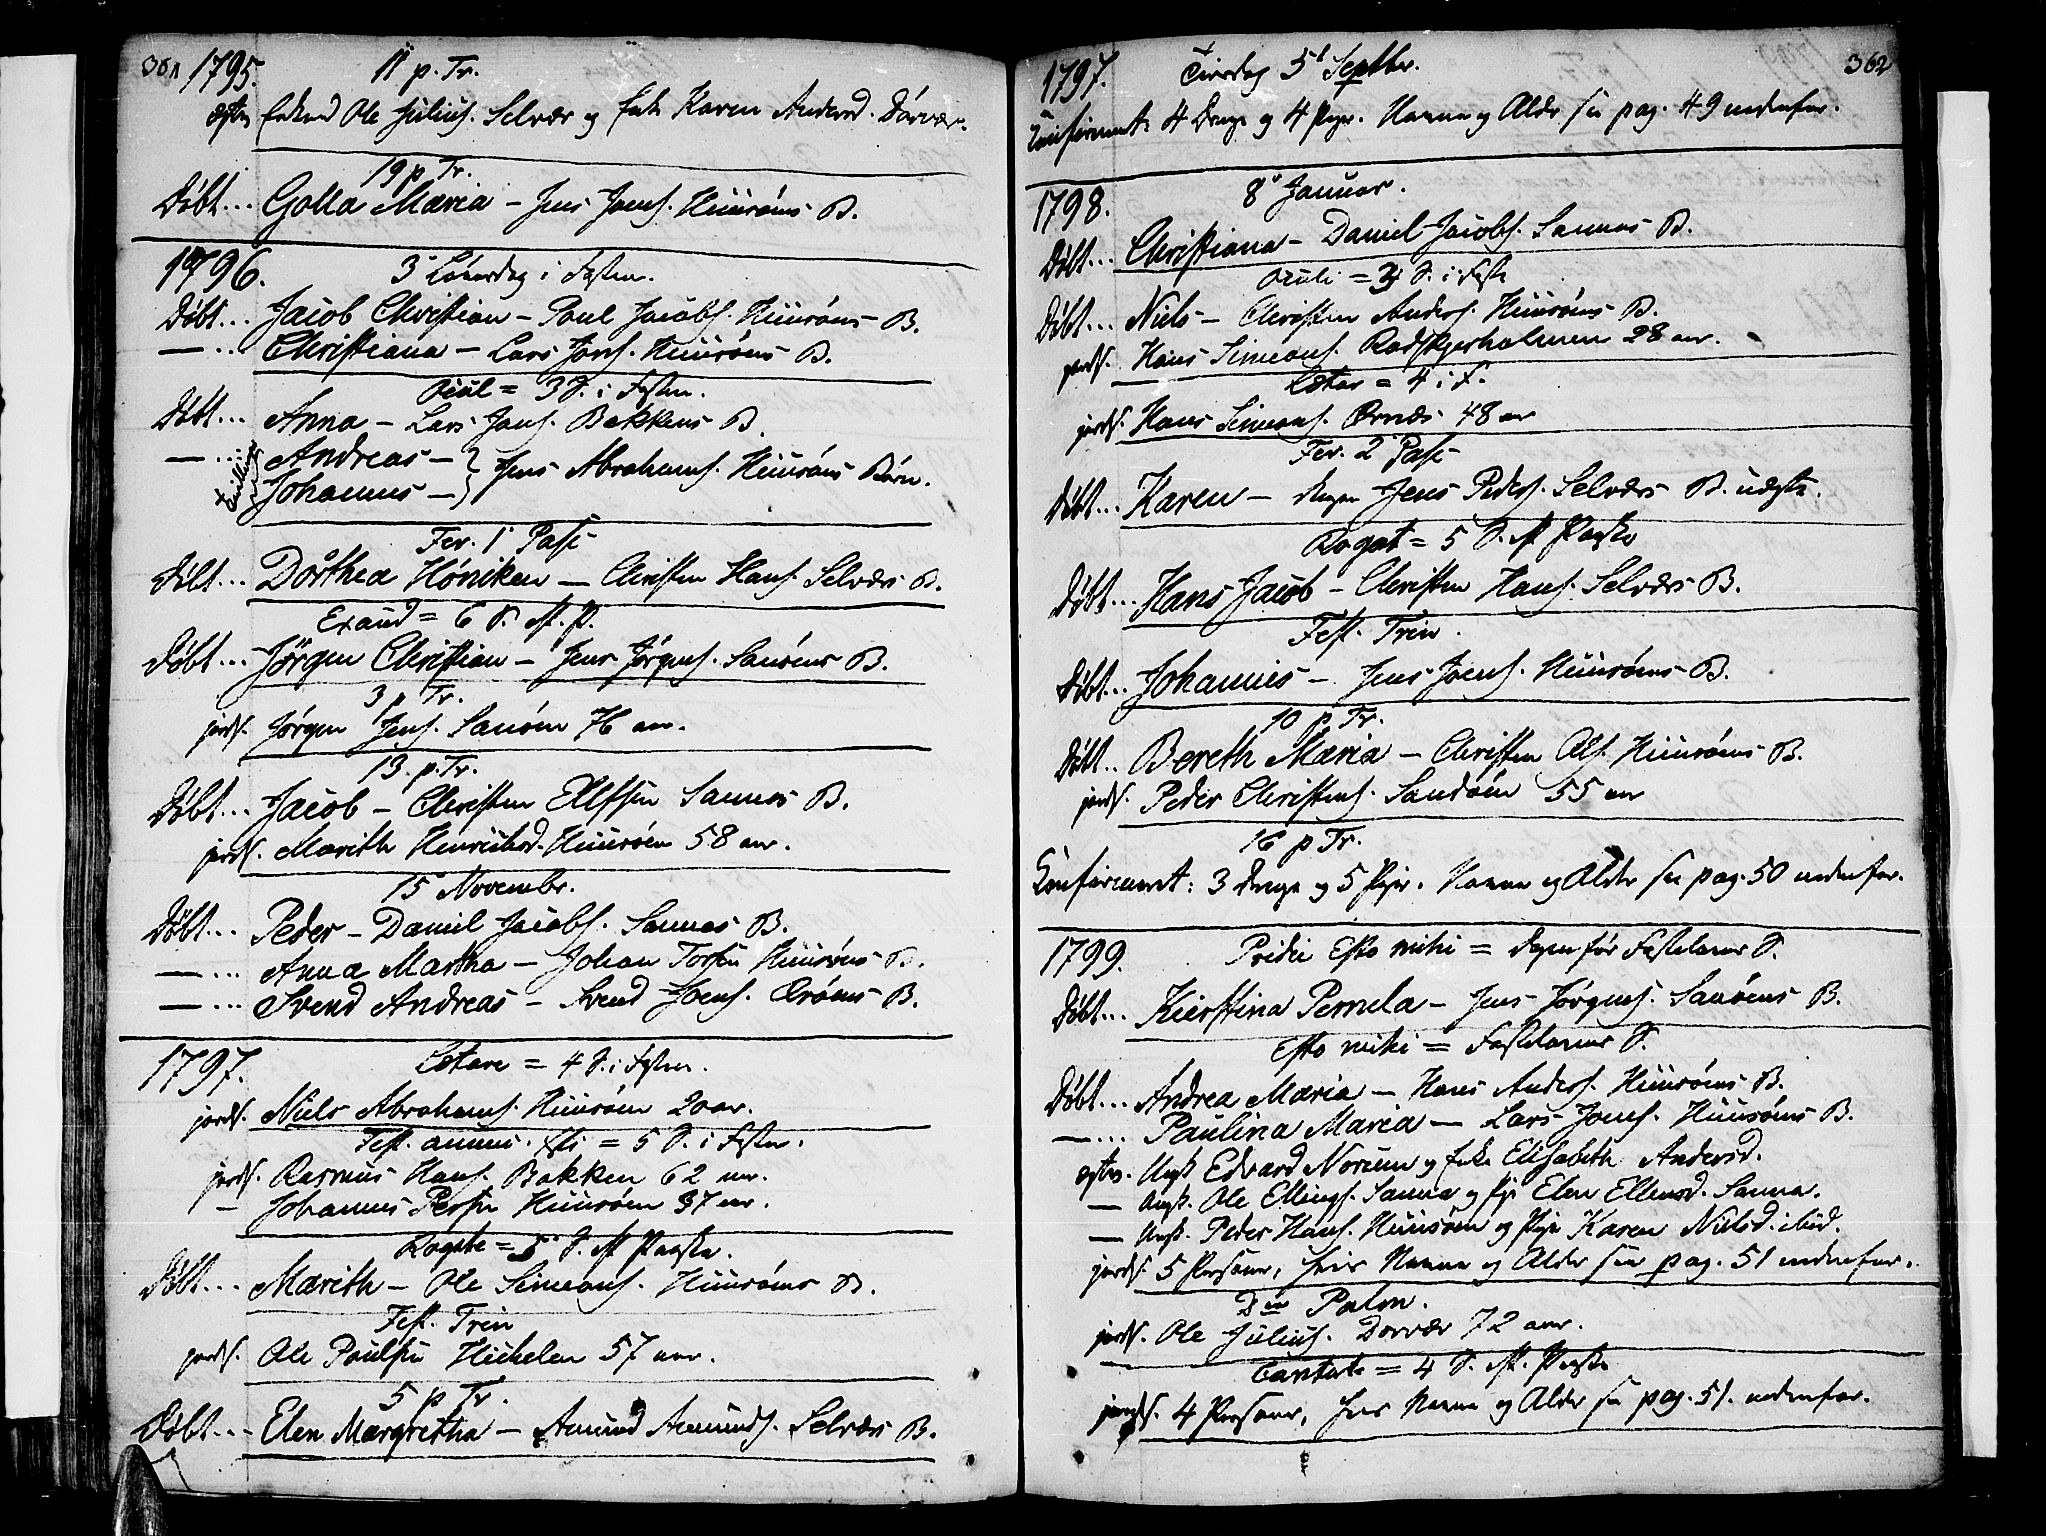 361 1795. 11 p. Tr.
Enkem̄ Ole Juliuss. Selvær og Enke Karen Andersd. Dörvær.
19 p. Tr.
Döbt... Golla Maria – Jens Joens. Huusöens B.
1796. 3die Löverdag i Fasten.
Döbt... Jacob Christian – Poul Jacobs. Huusöens B.
— ... Christiana – Lars Jons. Huusöens B.
Ocul = 3 S. i Fasten.
Döbt... Anna – Lars Jons. Bakkens B.
— ... Andreas – } Jens Abrahams. Huusöens Börn.
Tvillinger Johannes – }
Fer. 1 Pasc
Döbt... Dorthea Höniken — Christen Hans. Selværs B.
Exaud = 6 S. eft. P.
Döbt... Jörgen Christian – Jens Jörgens. Sanöens B.
3 p Tr.
jords. Jörgen Jens. Sanöen 76 aar.
13. p. Tr.
Döbt... Jacob – Christen Elfsen Sannes B.
jords. Marith Henrichsd. Huusöen 58 aar.
15 Novembr.
Döbt... Peder – Daniel Jacobs. Sannes B.
— ... Anna Martha – Johan Torsen Huusöens B.
— ... Svend Andreas – Svend Joens. Öröens B.
1797. Letare = 4 S. i Fasten.
jords. Niels Abrahams. Huusöen 20 aar.
Fest. annunc. = 5 S. i Fasten.
jords. Rasmus Hans. Bakken 62 aar.
— Johannes Persen Huusöen 37 aar.
Rogate = 5 S. eft Paaske.
Döbt... Marith – Ole Simeons. Huusöens B.
Fest. Trin
jords. Ole Poulsen Hichelen 57 aar.
5 p Tr.
Döbt... Elen Margretha – Amund Amunds. Selvær B.
362
1797. Tirsdag 5t Septbr.
Confirmert: 4 Drenge og 4 Piger. Navne og Alder see pag. 49 nedenfor.
1798. 8 Januar.
Döbt... Christiana – Daniel Jacobs. Sannes B.
Oculi = 3 S. i Faste
Döbt... Niels – Christen Anders. Huusöens B.
jords. Hans Simeons. Rodskjerholmen 28 aar.
Letar = 4 i F.
jords. Hans Simeons. Örnes 48 aar
Fer. 2 Pasc
Döbt... Karen – Jens Peders. Selværs B. uægte.
Rogat = 5 S. eft Paaske
Döbt... Hans Jacob – Christen Hans. Selværs B.
Fest. Trin.
Döbt... Johannes – Jens Joens. Huusöens B.
10 p. Tr.
Döbt.. Bereth Maria – Christen Ols. Huusöens B.
jords. Peder Christens. Sandöen 55 aar
16 p Tr.
Confirmeret: 3 Drenge og 5 Piger. Navne og Alder see pag. 50 nedenfor.
1799. Pridie Esto mihi = Dagen för Fastelavns S.
Döbt... Kierstina Pernela – Jens Jörgens. Sanöens B.
Esto mihi = Fastelavns S.
Döbt... Andrea Maria – Hans Anders. Huusöens B.
— ... Paulina Maria — Lars Jons. Huusöens B.
Ungk. Edvard Norum og Enke Elisabeth Andersd.
— Ungk. Ole Ellings. Sanna og Pige Elen Ellensd. Sanna.
— Ungk. Peder Hans. Huusöen og Pige Karen Nielsd. ibid.
jords. 5 Personer, hvis Navne og Alder see pag. 51 nedenfor.
Dom Palm.
jords. Ole Juliuss. Dorvær 72 aar.
Cantate = 4 S. eft. Paaske
jords. 4 Personer, hvis Navne og Alder see pag. 51. nedenfor.